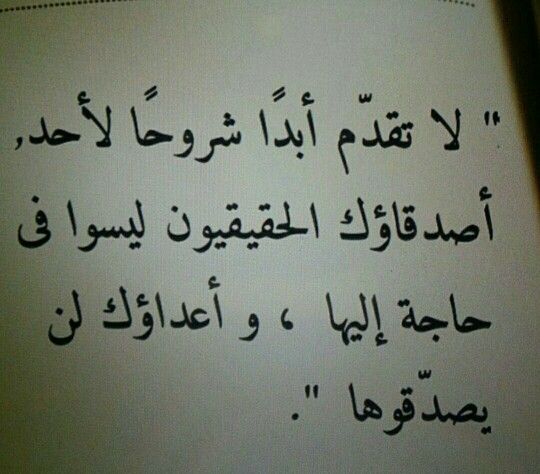 " لا تقدّم أبدًا شروحًا لأحد,
أصدقاؤك الحقيقيون ليسوا فى
حاجة إليها ، و أعداؤك لن
يصدّقوها ".